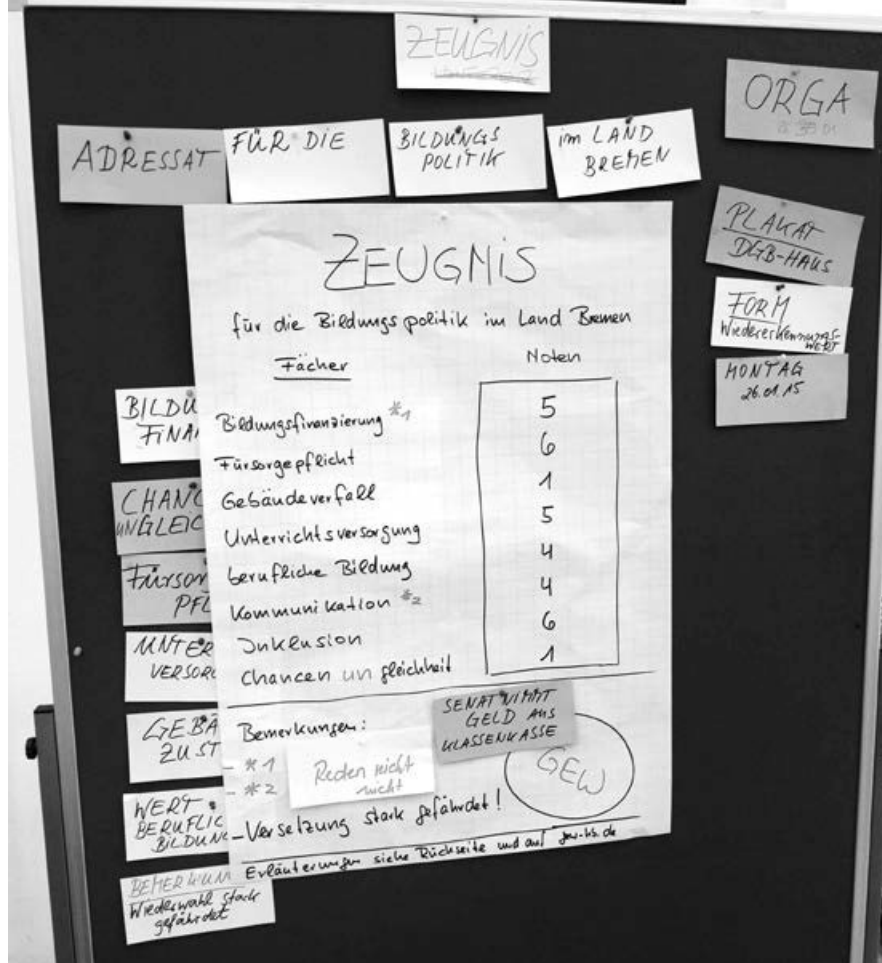 ZEUGNIS
ORGA
ADRESSAT
FÜR DIE
BILDUNGS
POLITIK
im LAND
BREMEN
PLAKAT
DGB-HAUS
FORM
Wiedererkennungs-
WERT
MONTAG
26.01.15
ZEUGNIS
für die Bildungspolitik im Land Bremen
Fächer Noten
Bildungsfinanzierung *1 5
Fürsorgepflicht 6
Gebäudeverfall 1
Unterrichtsversorgung 5
berufliche Bildung 4
Kommunikation *2 4
Inklusion 6
Chancen un gleichheit 1
Bemerkungen:
SENAT NIMMT
GELD AUS
KLASSENKASSE
- *1
- *2
Reden nicht
nicht
GEW
- Versetzung stark gefährdet!
Erläuterungen siehe Rückseite und auf gew-hb.de
BILDU
FINA
CHANC
UNGLEIC
Fürsor
PFL
UNTER
VERSOR
GEBÄ
ZU ST
WERT
BERUFLIC
BILDUN
BEMERKUN
Wiederwahl stark
gefährdet